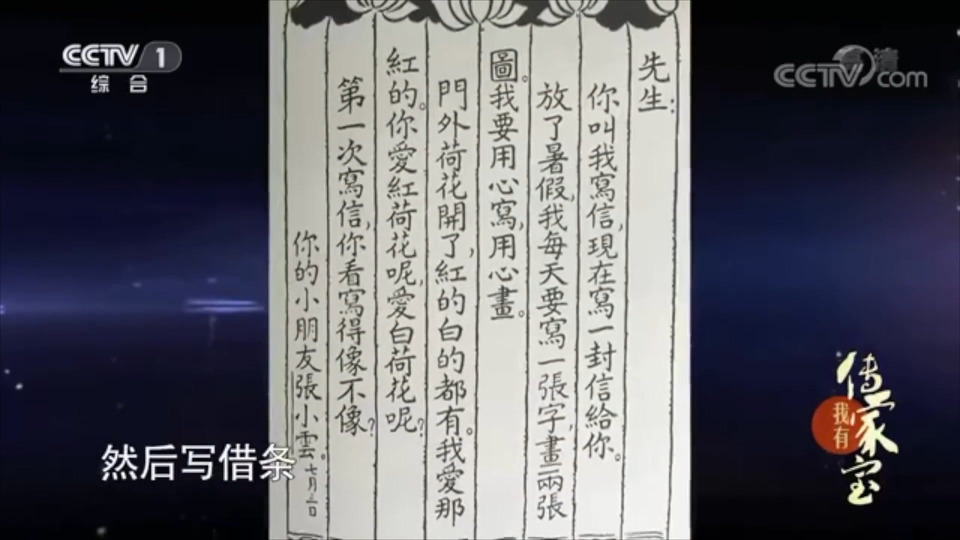 CCTV 1
综合
CCTV.com
先生：
你叫我寫信，現在寫一封信給你。
放了暑假，我每天要寫一張字，畫兩張
圖。我要用心寫，用心畫。
門外荷花開了，紅的白的都有。我愛那
紅的。你愛紅荷花呢，愛白荷花呢？
第一次寫信，你看寫得像不像？
你的小朋友張小雲。七月二日
然后写借条
我有
傳家宝